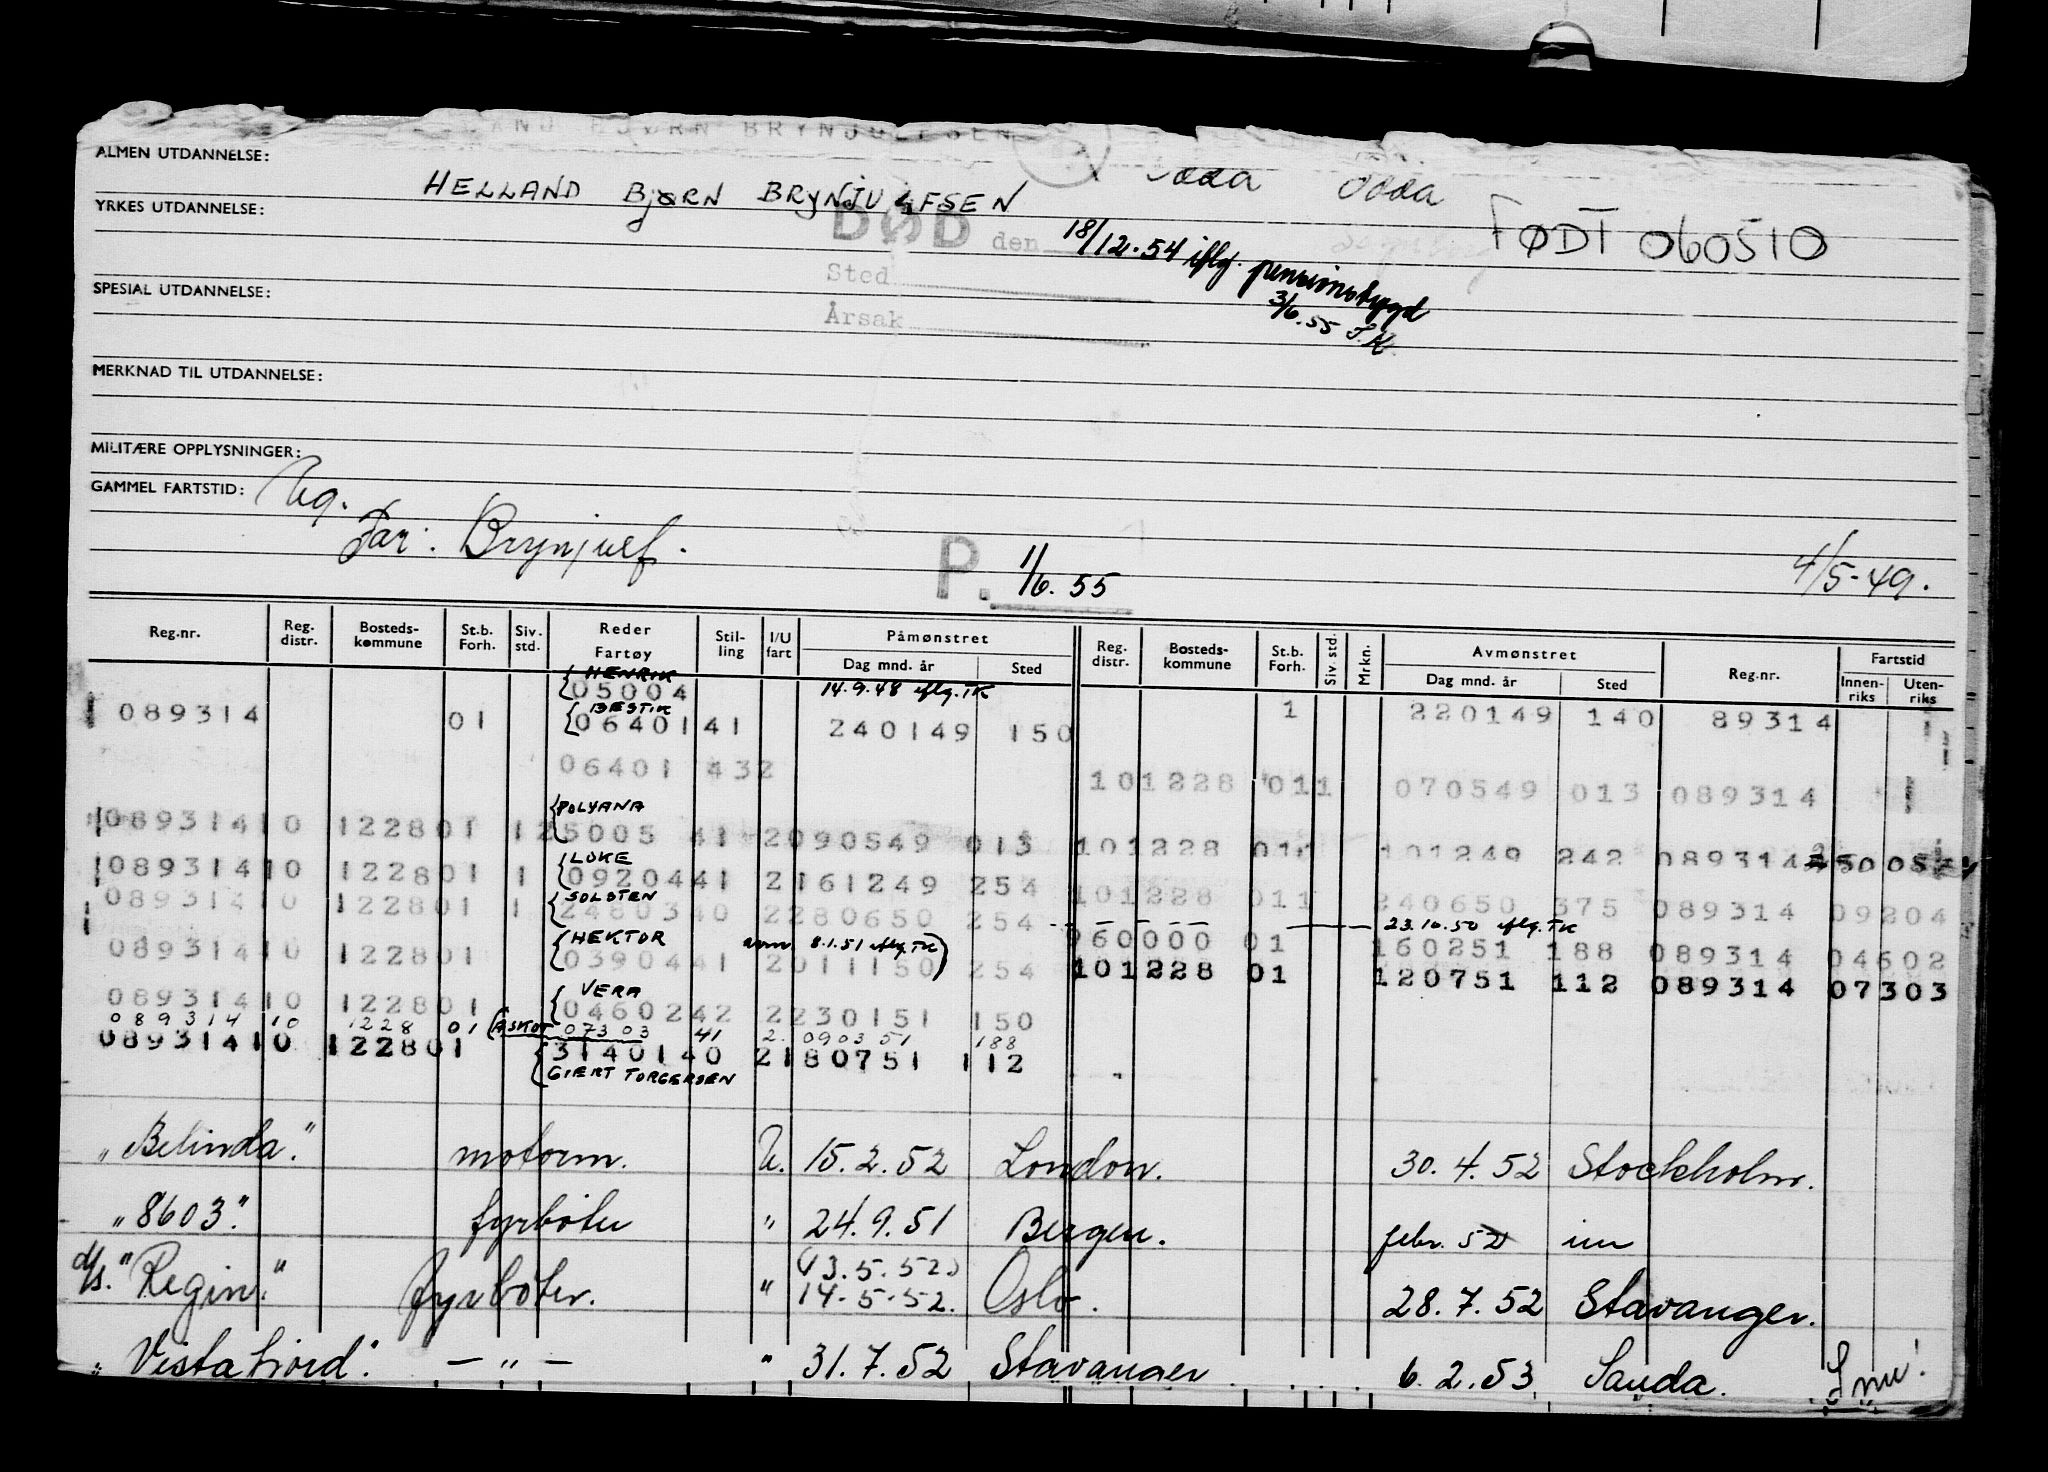 HELLAND BJØRN BRYNJULFSEN
ALMEN UTDANNELSE:
Odda Odda
HELLAND BJØRN BRYNJULFSEN
YRKES UTDANNELSE:
FØDT 060510
DØD den 18/12.54 iflg. pensionstrygd
3/6.55 S.K.
Sted
SPESIAL UTDANNELSE:
Årsak
MERKNAD TIL UTDANNELSE:
MILITÆRE OPPLYSNINGER:
GAMMEL FARTSTID: Ug.
Far: Brynjulf.
P. 1/6.55
4/5-49.
Reg.nr. Reg. distr. Bosteds-kommune St.b. Forh. Siv. std. Reder Fartøy Stil-ling I/U fart Påmønstret Dag mnd. år Sted Reg. distr. Bosteds-kommune St.b. Forh. Siv. std. Mrkn. Avmønstret Dag mnd. år Sted Reg.nr. Fartstid Innen-riks Uten-riks
HENRIK
05004 14.9.48 iflg. TK
BESTIK
089314 01 06401 41 240149 150 1 220149 140 89314
06401 432 101228 011 070549 013 089314
POLYANA
089314 10 122801 1 25005 41 2090549 013 101228 011 101249 242 089314
LOKE
089314 10 122801 1 09204 41 2161249 254 101228 011 240650 375 089314 09204
SOLSTEN
089314 10 122801 1 24803 40 2280650 254 23.10.50 iflg. TK
HEKTOR avm. 8.1.51 iflg. TK
960000 01 160251 188 089314 04602
089314 10 122801 03904 41 2011150 254 101228 01 120751 112 089314 07303
VERA
089314 10 122801 04602 42 2230151 150
089314 10 1228 01 ASKOT 07303 41 2 090351 188
089314 10 122801 31401 40 2180751 112
GIERT TORGERSEN
"Belinda." motorm. U. 15.2.52 London. 30.4.52 Stockholm.
"8603." fyrbøter " 24.9.51 Bergen. febr. 52
d/s. "Regin." fyrbøter. " (13.5.52) 14.5.52. Oslo. 28.7.52 Stavanger.
" — " — " 31.7.52 Stavanger 6.2.53 Sauda.